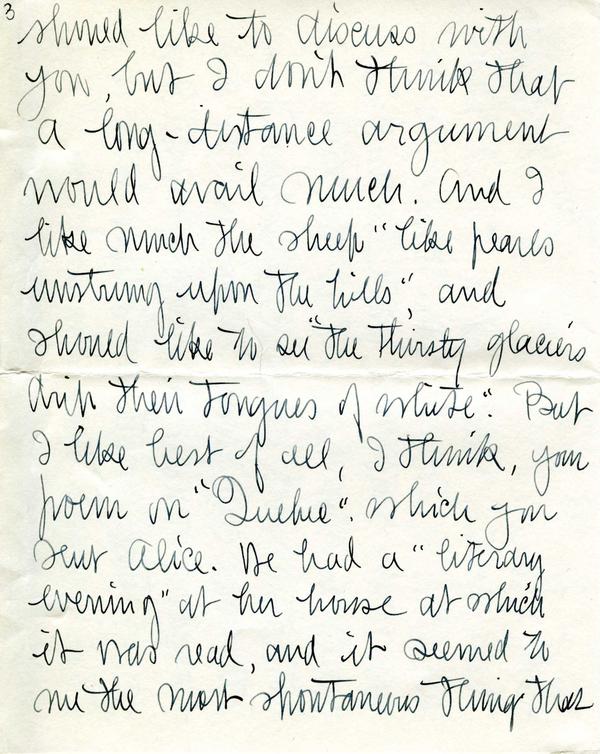 3
should like to discuss with
you, but I don't think that
a long-distance argument
would avail much. And I
like much the sheep "like pearls
unstrung upon the hills", and
should like to see "the thirsty glaciers
drip their tongues of white". But
I like best of all, I think, your
poem on "Quebec". which you
sent Alice. We had a "literary
evening" at her house at which
it was read, and it seemed to
me the most spontaneous thing that